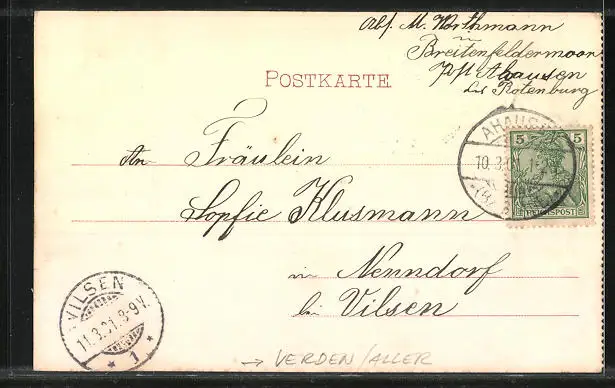 Abs. M. Worthmann
Breitenfeldermoor
Post Ahausen
bei Rotenburg
POSTKARTE
AHAUSE
10.3.
5 5
REICHSPOST
An Fräulein
Sophie Klusmann
in Nenndorf
bei Vilsen
VILSEN
11.3.01.8-9V.
* 1 *
→ VERDEN/ALLER